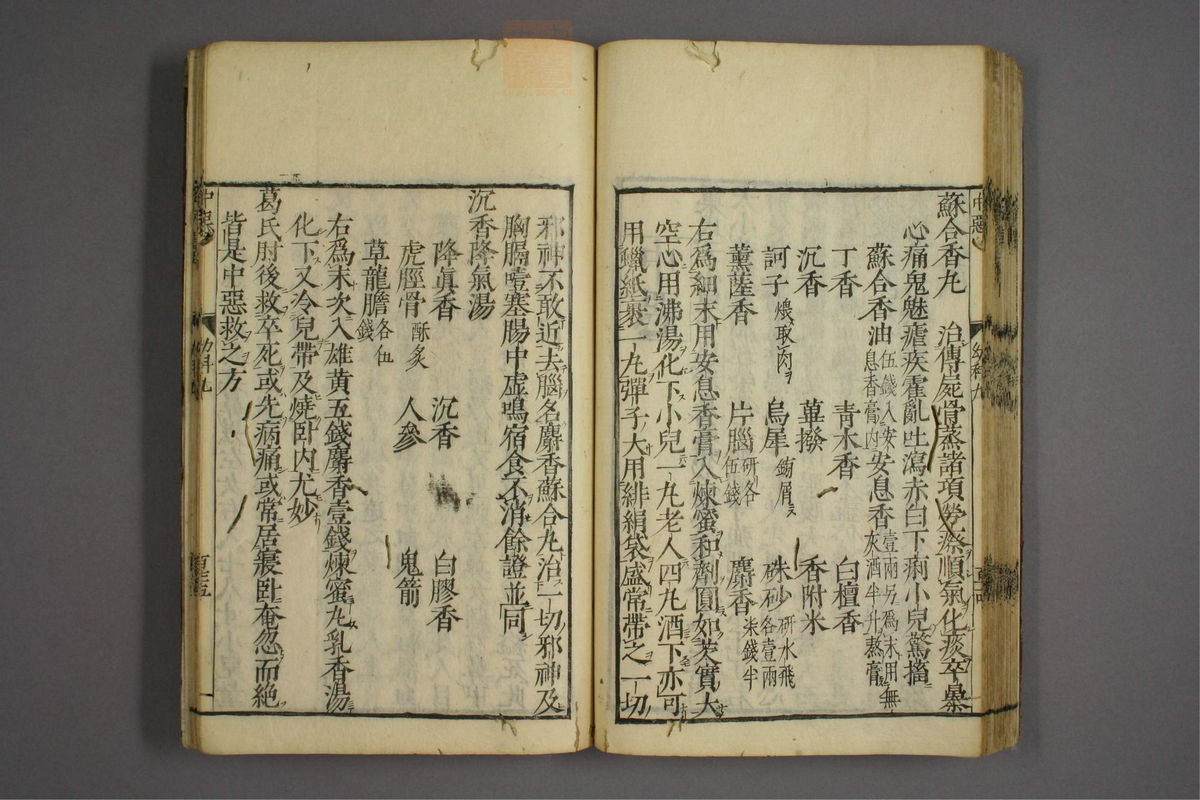 中惡
蘇合香丸　治傳屍骨蒸諸項勞瘵順氣化痰卒暴
心痛鬼魅瘧疾霍亂吐瀉赤白下痢小兒驚搐
蘇合香油　伍錢入安息香膏内　安息香　壹兩另爲末用無灰酒半升蒸膏
丁香　青木香　白檀香
沉香　蓽撥　香附米
訶子　煨取肉　烏犀　鎊屑　硃砂　研水飛各壹兩
薰薩香　片腦　研各伍錢　麝香　柒錢半
右爲細末用安息香膏入煉蜜和劑圓如芡實大
空心用沸湯化下小兒一丸老人四丸酒下亦可
用蠟紙裹一丸彈子大用緋絹袋盛常帶之一切
邪神不敢近去腦名麝香蘇合丸治一切邪神及
胸膈噎塞腸中虚鳴宿食不消餘證並同
沉香降氣湯
降眞香　沉香　白膠香
虎脛骨　酥炙　人參　鬼箭
草龍膽　各伍錢
右爲末次入雄黄五錢麝香壹錢煉蜜丸乳香湯
化下又冷兒帶及燒卧内尤妙
葛氏肘後救卒死或先病痛或常居寢卧奄忽而絶
皆是中惡救之方
中惡
幼科九